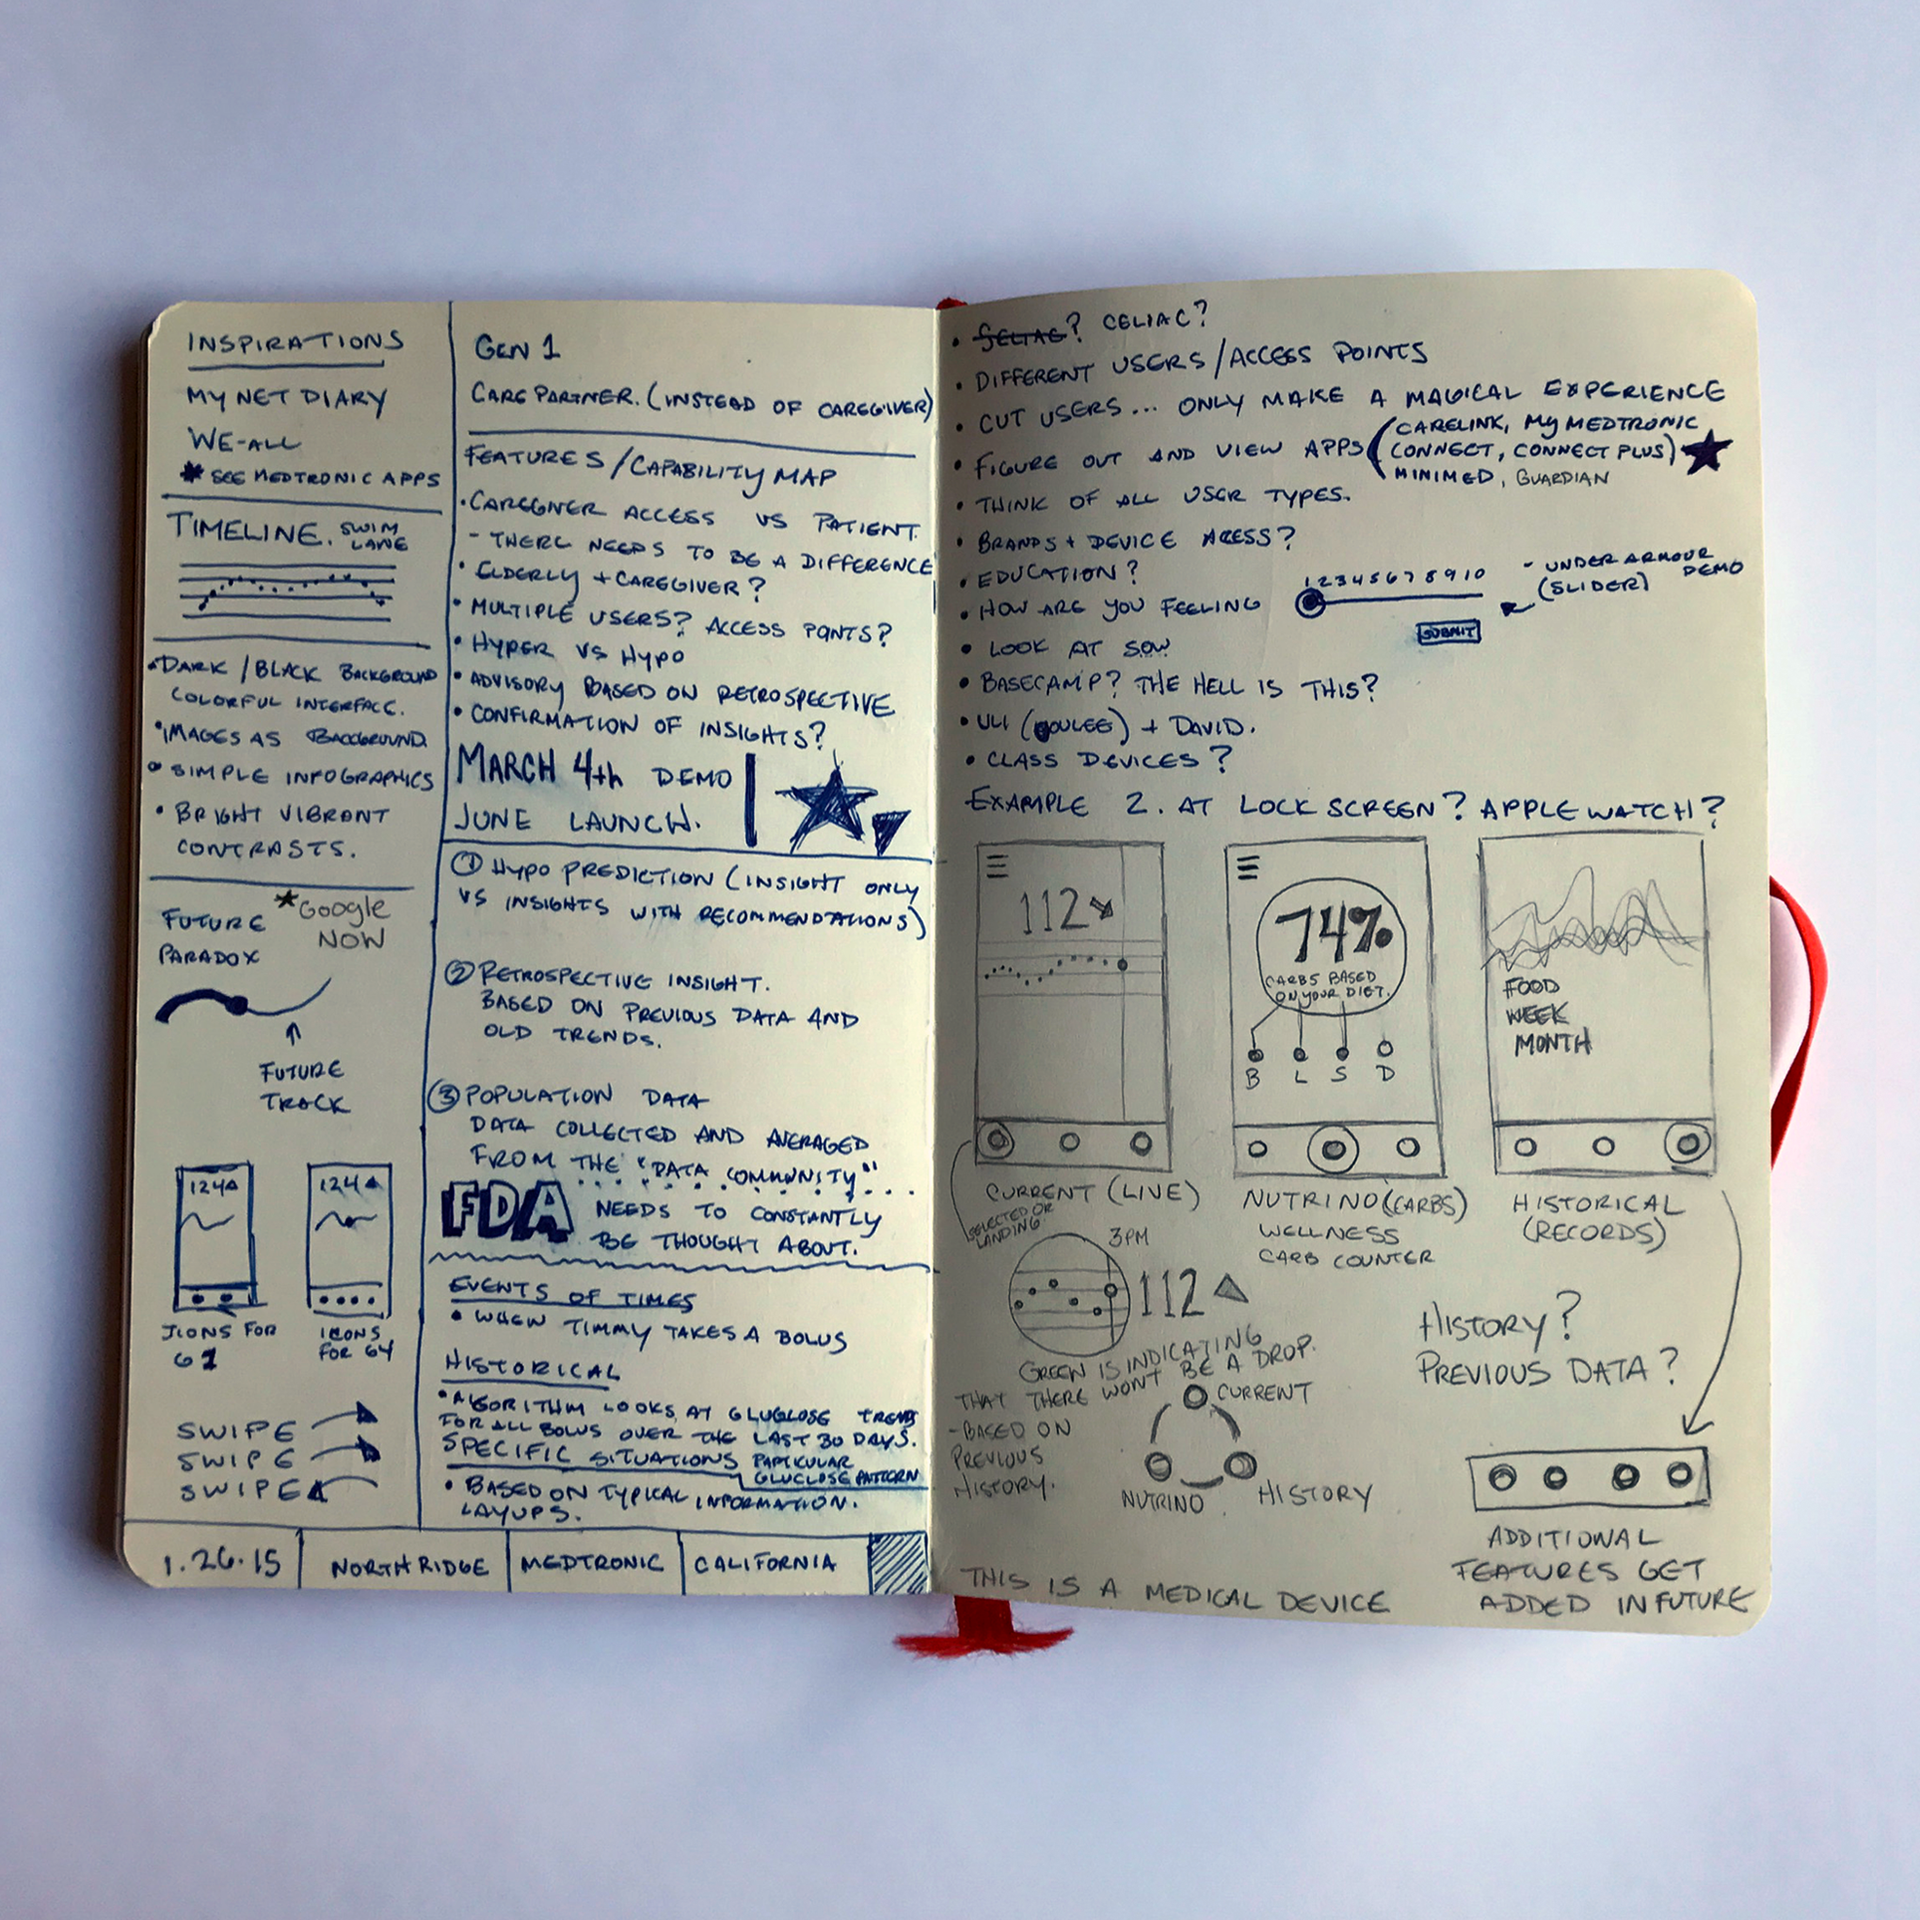 INSPIRATIONS
MY NET DIARY
WE-ALL
* SEE MEDTRONIC APPS
TIMELINE. SWIM
LANE
• DARK / BLACK BACKGROUND
COLORFUL INTERFACE.
• IMAGES AS BACKGROUND.
• SIMPLE INFOGRAPHICS
• BRIGHT VIBRANT
CONTRASTS.
FUTURE
PARADOX
*GOOGLE
NOW
FUTURE
TRACK
124
124
ICONS FOR
G1
ICONS
FOR G4
SWIPE
SWIPE
SWIPE
GEN 1
CARE PARTNER. (INSTEAD OF CAREGIVER)
FEATURES / CAPABILITY MAP
• CAREGIVER ACCESS VS PATIENT.
- THERE NEEDS TO BE A DIFFERENCE
• ELDERLY + CAREGIVER?
• MULTIPLE USERS? ACCESS POINTS?
• HYPER VS HYPO
• ADVISORY BASED ON RETROSPECTIVE
• CONFIRMATION OF INSIGHTS?
MARCH 4th DEMO
JUNE LAUNCH.
① HYPO PREDICTION (INSIGHT ONLY
VS INSIGHTS WITH RECOMMENDATIONS)
② RETROSPECTIVE INSIGHT.
BASED ON PREVIOUS DATA AND
OLD TRENDS.
③ POPULATION DATA
DATA COLLECTED AND AVERAGED
FROM THE "DATA COMMUNITY"
FDA NEEDS TO CONSTANTLY
BE THOUGHT ABOUT.
EVENTS OF TIMES
• WHEN TIMMY TAKES A BOLUS
HISTORICAL
• ALGORITHM LOOKS AT GLUGLOSE TRENDS
FOR ALL BOLUS OVER THE LAST 30 DAYS.
SPECIFIC SITUATIONS PARTICULAR
GLUCLOSE PATTERN
• BASED ON TYPICAL INFORMATION.
LAYUPS.
1.26.15 NORTHRIDGE MEDTRONIC CALIFORNIA
• SELIAC? CELIAC?
• DIFFERENT USERS / ACCESS POINTS
• CUT USERS... ONLY MAKE A MAGICAL EXPERIENCE
• FIGURE OUT AND VIEW APPS (CARELINK, MY MEDTRONIC
CONNECT, CONNECT PLUS)
MINIMED, GUARDIAN
• THINK OF ALL USER TYPES.
• BRANDS + DEVICE ACESS?
• EDUCATION?
• HOW ARE YOU FEELING
1 2 3 4 5 6 7 8 9 10
SUBMIT
- UNDER ARMOUR
(SLIDER) DEMO
• LOOK AT SOW
• BASECAMP? THE HELL IS THIS?
• ULI (OULEE) + DAVID.
• CLASS DEVICES?
EXAMPLE 2. AT LOCK SCREEN? APPLE WATCH?
112
74%
CARBS BASED
ON YOUR DIET.
B L S D
FOOD
WEEK
MONTH
CURRENT (LIVE)
SELECTED OR
LANDING
NUTRINO (CARBS)
WELLNESS
CARB COUNTER
HISTORICAL
(RECORDS)
3PM
112
GREEN IS INDICATING
THAT THERE WONT BE A DROP.
- BASED ON
PREVIOUS
HISTORY.
CURRENT
NUTRINO
HISTORY
HISTORY?
PREVIOUS DATA?
ADDITIONAL
FEATURES GET
ADDED IN FUTURE
THIS IS A MEDICAL DEVICE